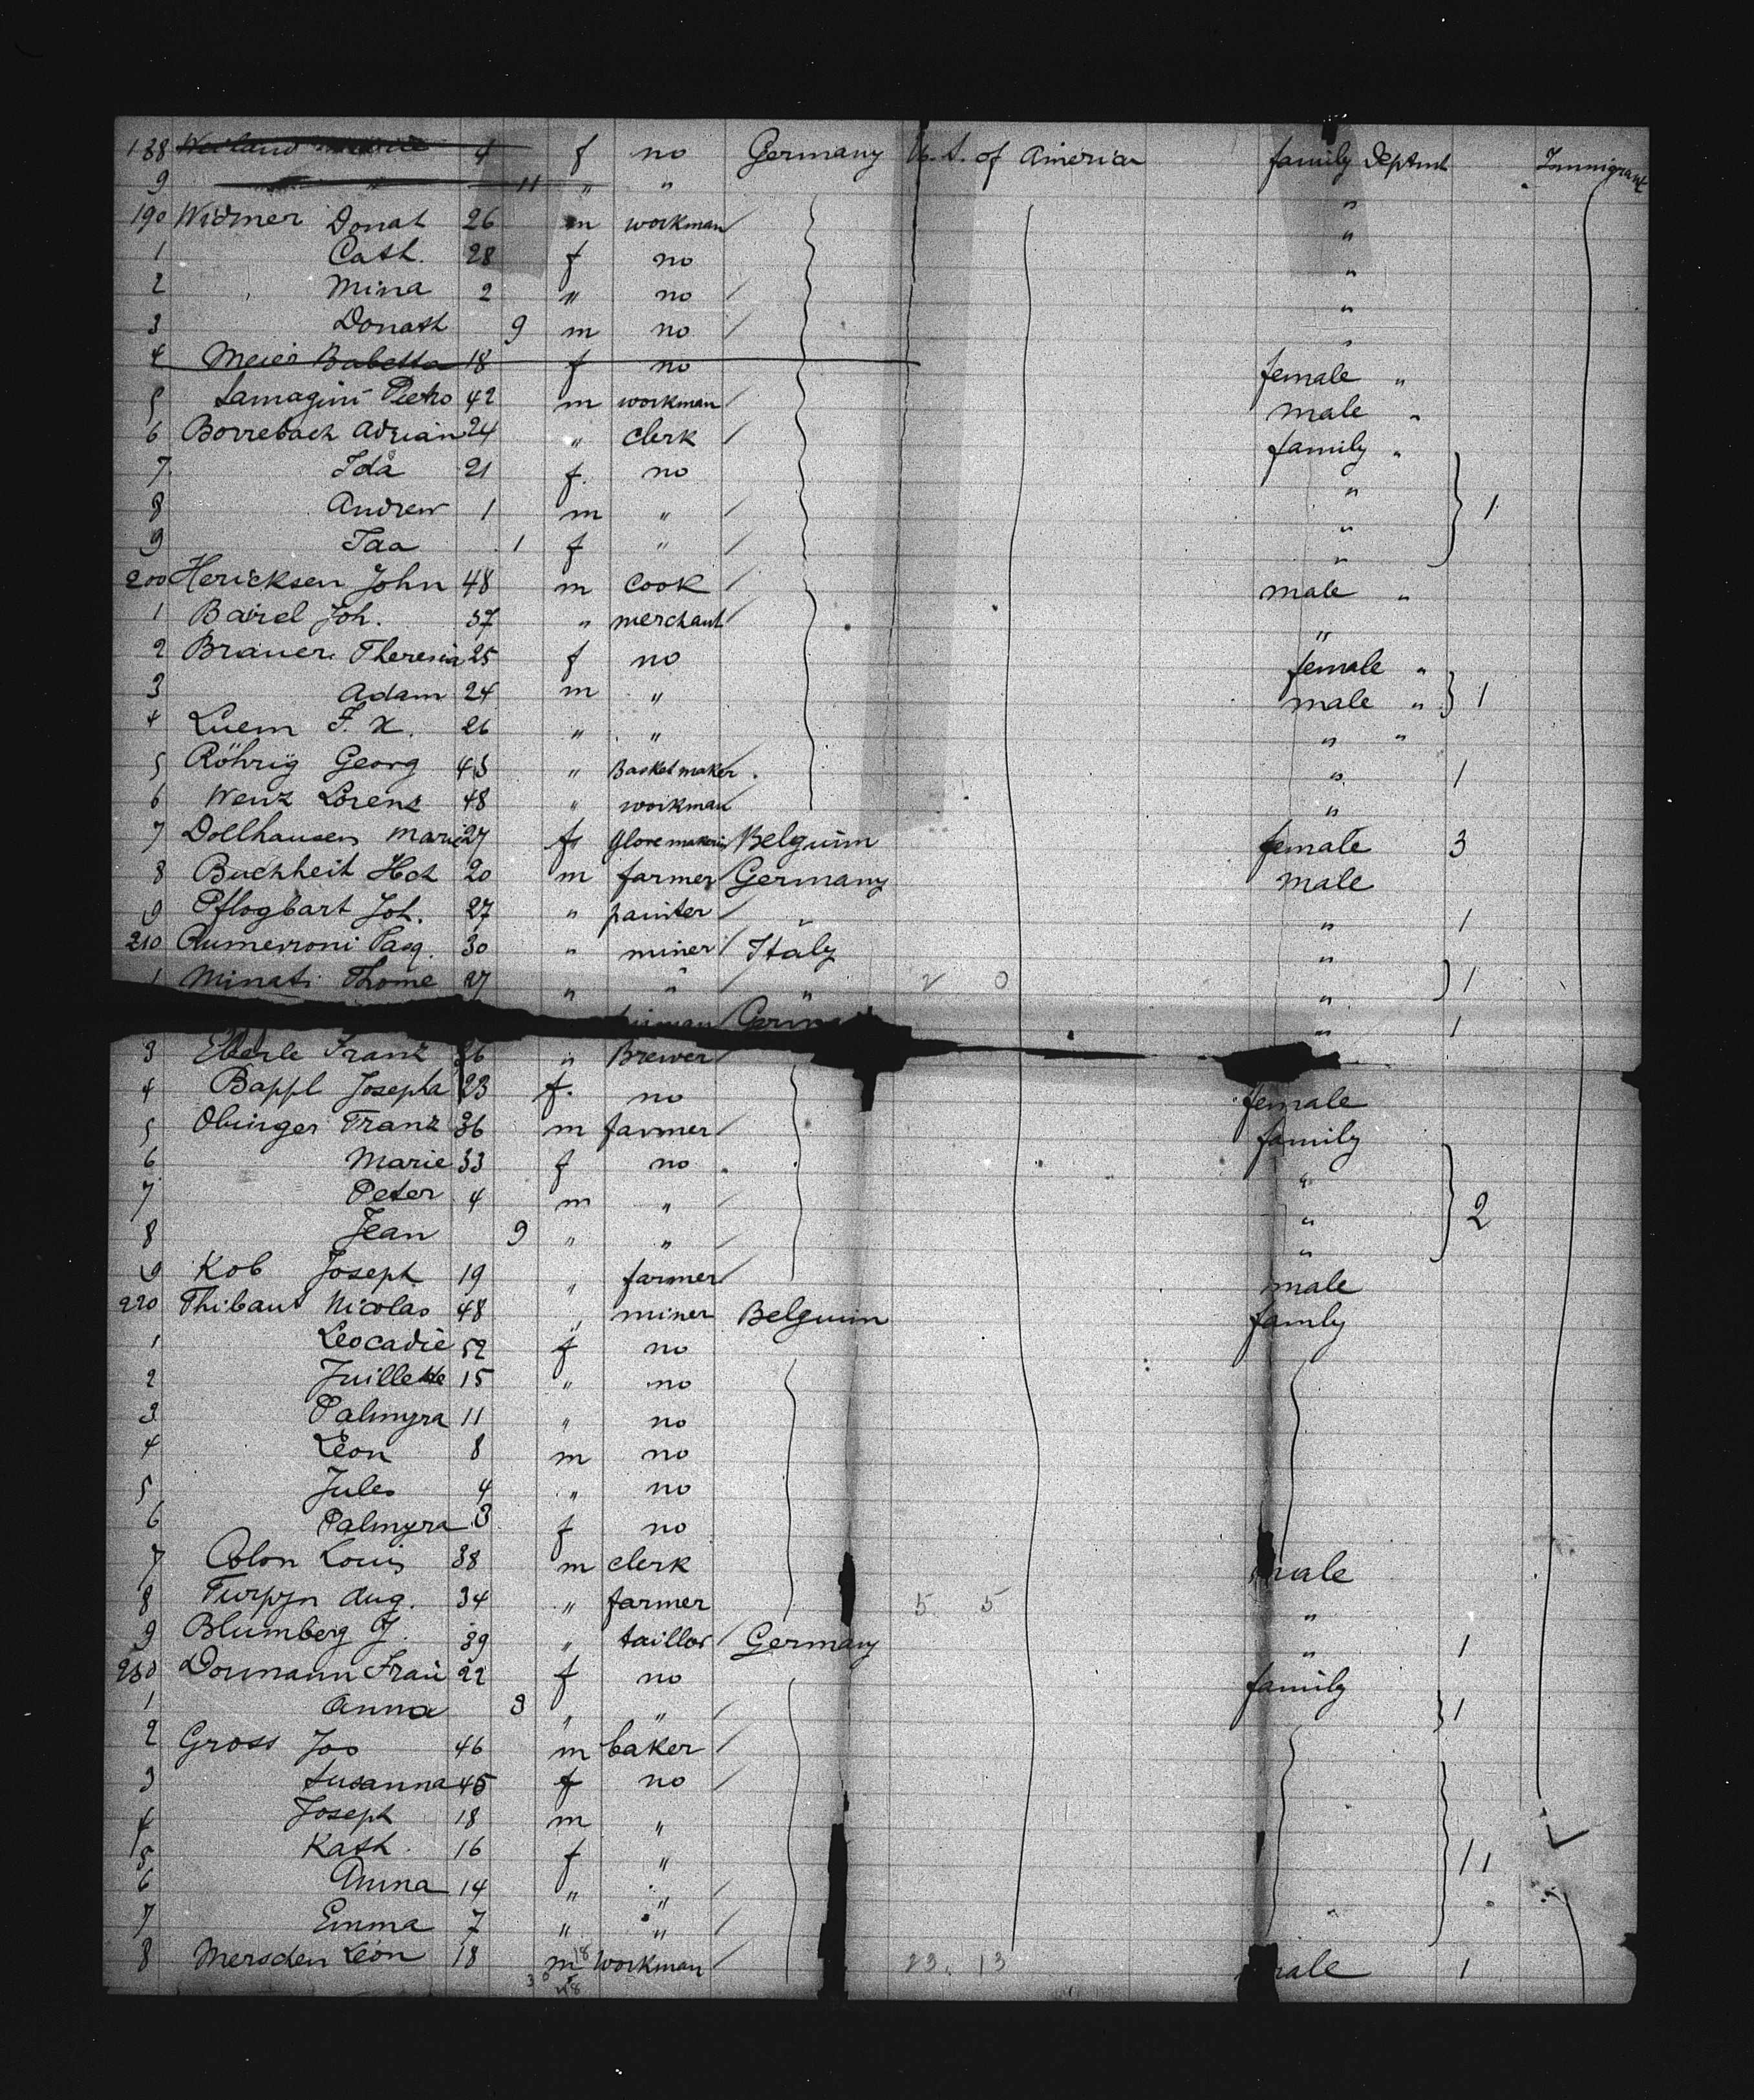 188 Weiland 4 f no Germany U. S. of America family Deptmt Immigrant
9 " 11 " " "
190 Widmer Donat 26 m workman "
1 Cath. 28 f no "
2 Mina 2 " no "
3 Donath 9 m no "
4 Meier Babetta 18 f no female "
5 Lamagini Pietro 42 m workman male "
6 Borrebach Adrian 24 " clerk family "
7 Ida 21 f. no "
8 Andrew 1 m " " 1
9 Ida 1 f " "
200 Hericksen John 48 m cook male "
1 Bairel Joh. 37 " merchant "
2 Brauer Theresia 25 f no female "
3 Adam 24 m " male " 1
4 Luem F. X. 26 " " " "
5 Röhrig Georg 43 " Basket maker " 1
6 Wenz Lorenz 48 " workman "
7 Dollhausen Marie 27 f Belguim female 3
8 Buchheit Hch 20 m farmer Germany male
9 Pflogbart Joh. 27 " painter " " 1
210 Rumerroni Pasq. 30 " miner Italy "
1 Minati Thome 27 " " " 2 0 " 1
" 1
3 Eberle Franz 26 " Brewer
4 Bappl Josepha 23 f. no female
5 Obinger Franz 36 m farmer family
6 Marie 33 f no "
7 Peter 4 m " " 2
8 Jean 9 " " "
9 Kob Joseph 19 " farmer male
220 Thibaut Nicolas 48 " miner Belguim family
1 Leocadie 52 f no
2 Juillette 15 " no
3 Palmyra 11 " no
4 Leon 8 m no
5 Jules 4 " no
6 Palmyra 3 f no
7 Colon Louis 38 m clerk male
8 Turpyn Aug. 34 " farmer 5 5 "
9 Blumberg J. 39 " taillor Germany " 1
230 Dormann Frau 22 f no family
1 Anna 3 " " 1
2 Gross Jos 46 m baker
3 Susanna 45 f no
4 Joseph 18 m "
5 Kath. 16 f " 11
6 Anna 14 " "
7 Emma 7 " " "
8 Merschen Léon 18 m 18 workman 23. 13 male 1